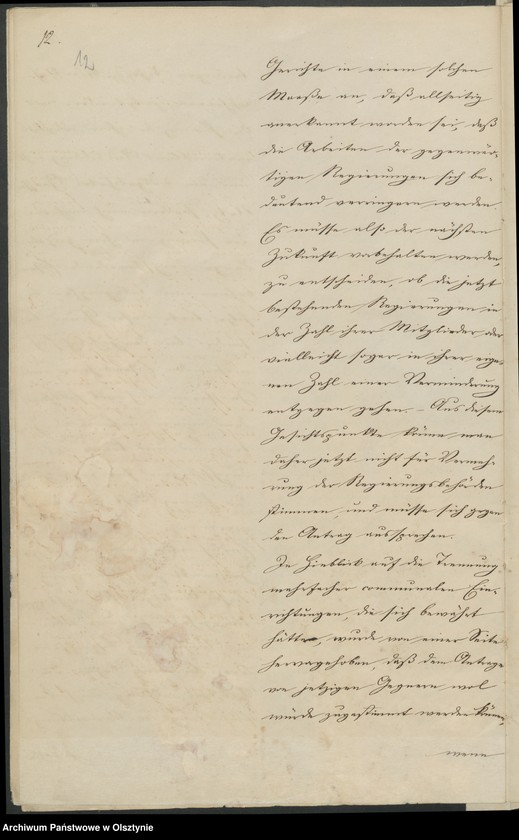 12.
12
Gerichte in einem solchen
Maaße an, daß allseitig
anerkannt worden sei, daß
die Arbeiten der gegenwär-
tigen Regierungen sich be-
deutend verringern werden.
Es müsse also der nächsten
Zukunft vorbehalten werden,
zu entscheiden, ob die jetzt
bestehenden Regierungen in
der Zahl ihrer Mitglieder oder
vielleicht sogar in ihrer eige-
nen Zahl einer Verminderung
entgegen gehen. – Aus diesem
Gesichtspunkte könne man
daher jetzt nicht für Vermeh-
rung der Regierungsbehörden
stimmen, und müsse sich gegen
den Antrag aussprechen.
In Hinblick auf die Trennung
mehrfacher communalen Ein-
richtungen, die sich bewährt
hätten, wurde von einer Seite
hervorgehoben, daß dem Antrage
von jetzigen Gegnern wol
würde zugestimmt werden können,
wenn
Archiwum Państwowe w Olsztynie